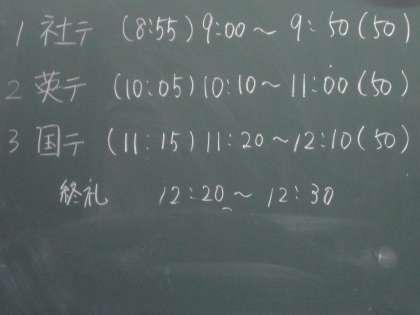 1 社テ (8:55) 9:00～9:50(50)
2 英テ (10:05) 10:10～11:00(50)
3 国テ (11:15) 11:20～12:10(50)
終礼 12:20～12:30